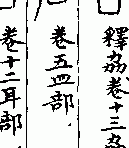 釋芻卷十三芻
卷五四部
卷十二耳部